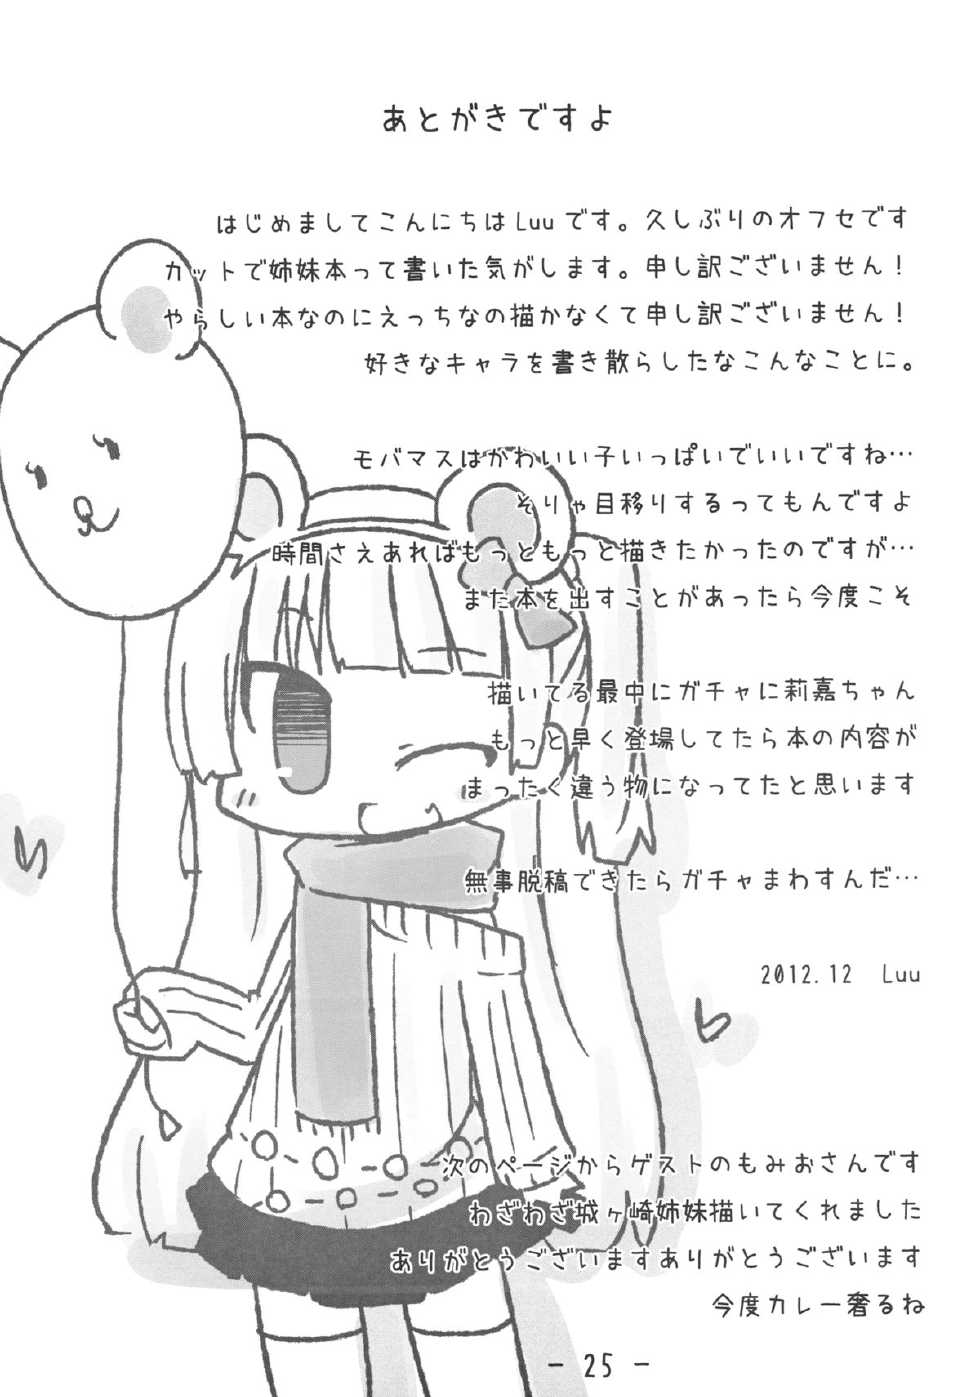 あとがきですよ
はじめましてこんにちはLuuです。久しぶりのオフセです
カットで姉妹本って書いた気がします。申し訳ございません！
やらしい本なのにえっちなの描かなくて申し訳ございません！
好きなキャラを書き散らしたなこんなことに。
モバマスはかわいい子いっぱいでいいですね…
そりゃ目移りするってもんですよ
時間さえあればもっともっと描きたかったのですが…
また本を出すことがあったら今度こそ
描いてる最中にガチャに莉嘉ちゃん
もっと早く登場してたら本の内容が
まったく違う物になってたと思います
無事脱稿できたらガチャまわすんだ…
2012.12 Luu
次のページからゲストのもみおさんです
わざわざ城ヶ崎姉妹描いてくれました
ありがとうございますありがとうございます
今度カレー奢るね
- 25 -